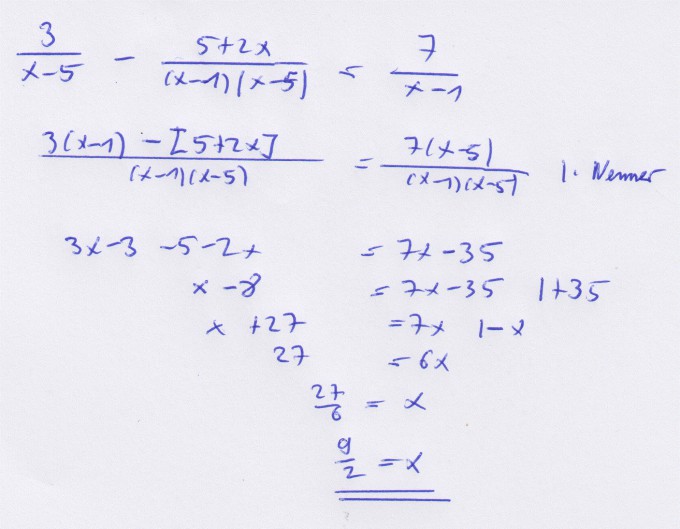 3/(x-5) - (5+2x)/((x-1)(x-5)) = 7/(x-1)
(3(x-1) - [5+2x])/((x-1)(x-5)) = 7(x-5)/((x-1)(x-5)) |· Nenner
3x-3 -5-2x = 7x-35
x -8 = 7x-35 |+35
x +27 = 7x |-x
27 = 6x
27/6 = x
9/2 = x